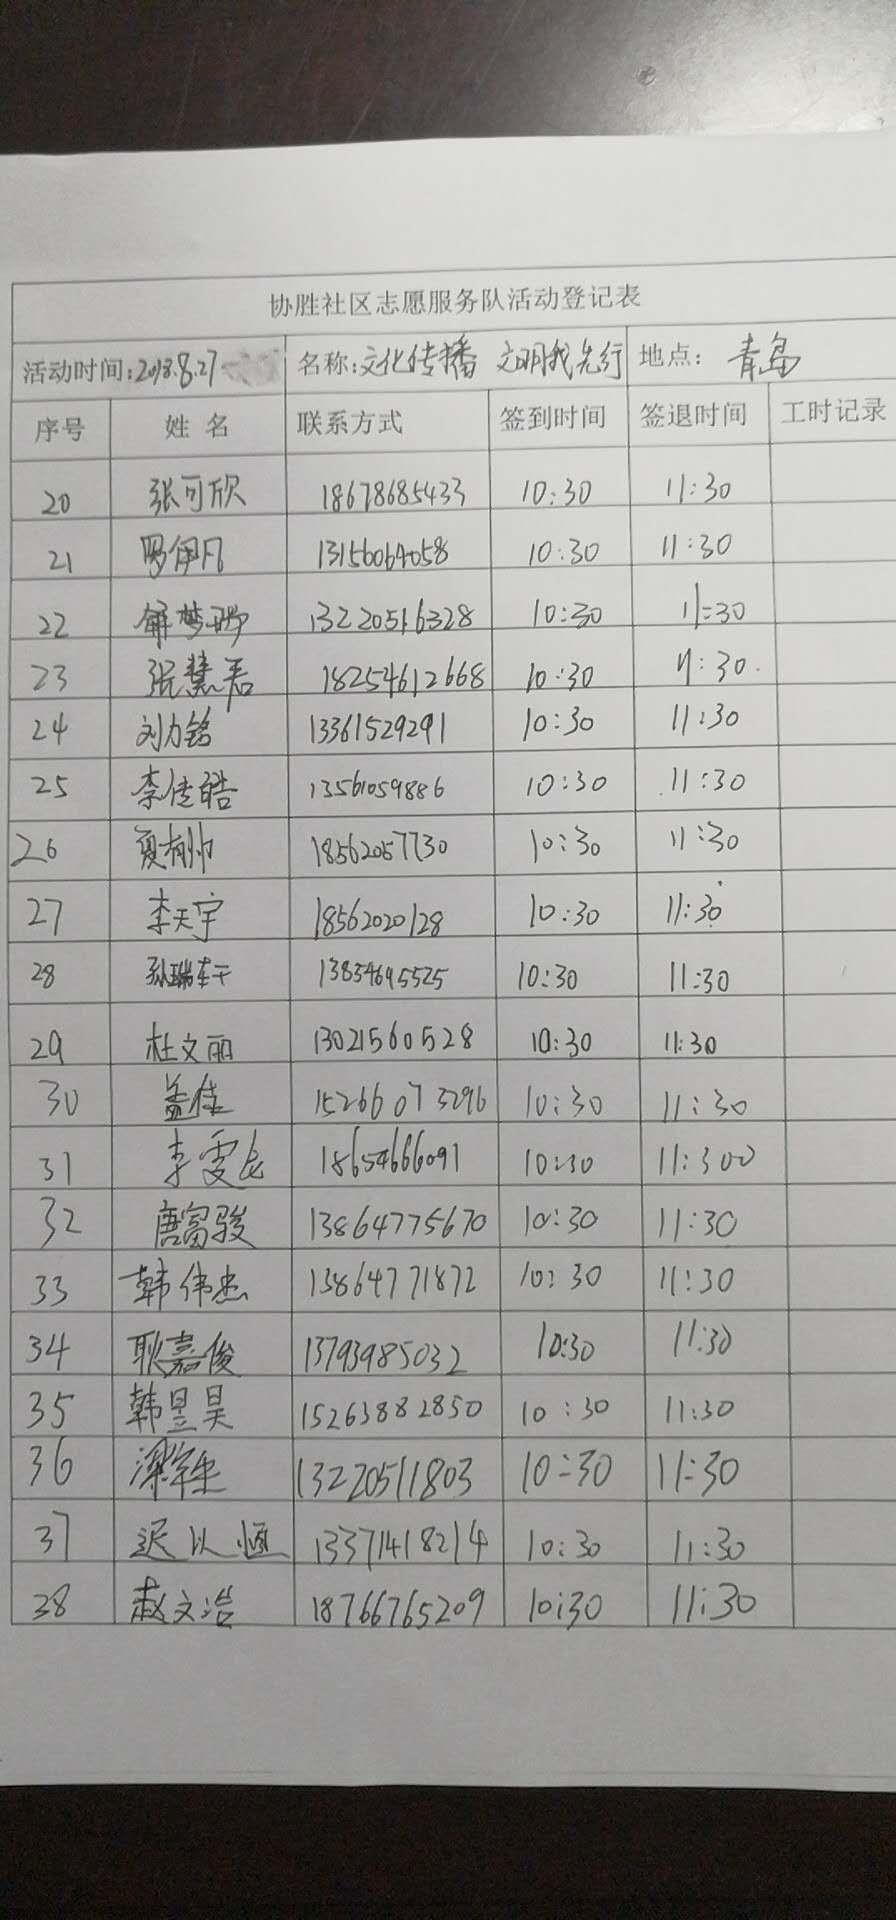 协胜社区志愿服务队活动登记表
活动时间:2018.8.27 名称:文化传播 文明我先行 地点: 青岛
序号 姓名 联系方式 签到时间 签退时间 工时记录
20 张可欣 18678685433 10:30 11:30
21 罗伊凡 13156064058 10:30 11:30
22 解梦 13220516328 10:30 11:30
23 张慧君 18254612668 10:30 11:30
24 刘力铭 13361529291 10:30 11:30
25 李佳皓 13561059886 10:30 11:30
26 夏有帅 18562057730 10:30 11:30
27 李天宇 18562020128 10:30 11:30
28 孙瑞轩 13854695525 10:30 11:30
29 杜文丽 13021560528 10:30 11:30
30 盖佳 15266073296 10:30 11:30
31 李雯 18654666091 10:30 11:300
32 唐富骏 13864775670 10:30 11:30
33 韩伟杰 13864771872 10:30 11:30
34 耿嘉俊 13793985032 10:30 11:30
35 韩昱昊 15263882850 10:30 11:30
36 梁 13220511803 10:30 11:30
37 迟以恒 13371418214 10:30 11:30
38 赵文浩 18766765209 10:30 11:30